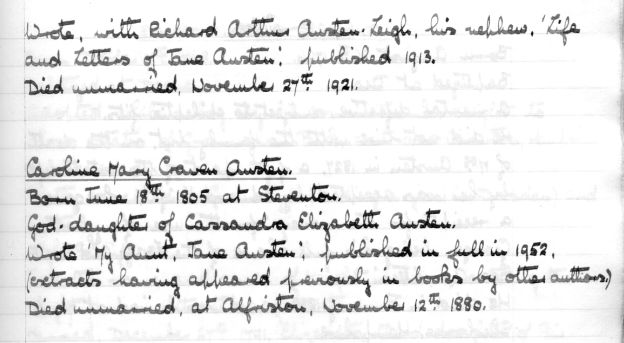 Wrote, with Richard Arthur Austen-Leigh, his nephew, 'Life
and Letters of Jane Austen'; published 1913.
Died unmarried, November 27th 1921.
Caroline Mary Craven Austen.
Born June 18th 1805 at Steventon.
God-daughter of Cassandra Elizabeth Austen.
Wrote 'My Aunt, Jane Austen'; published in full in 1952,
(extracts having appeared previously in books by other authors.)
Died unmarried, at Alfriston, November 12th 1880.